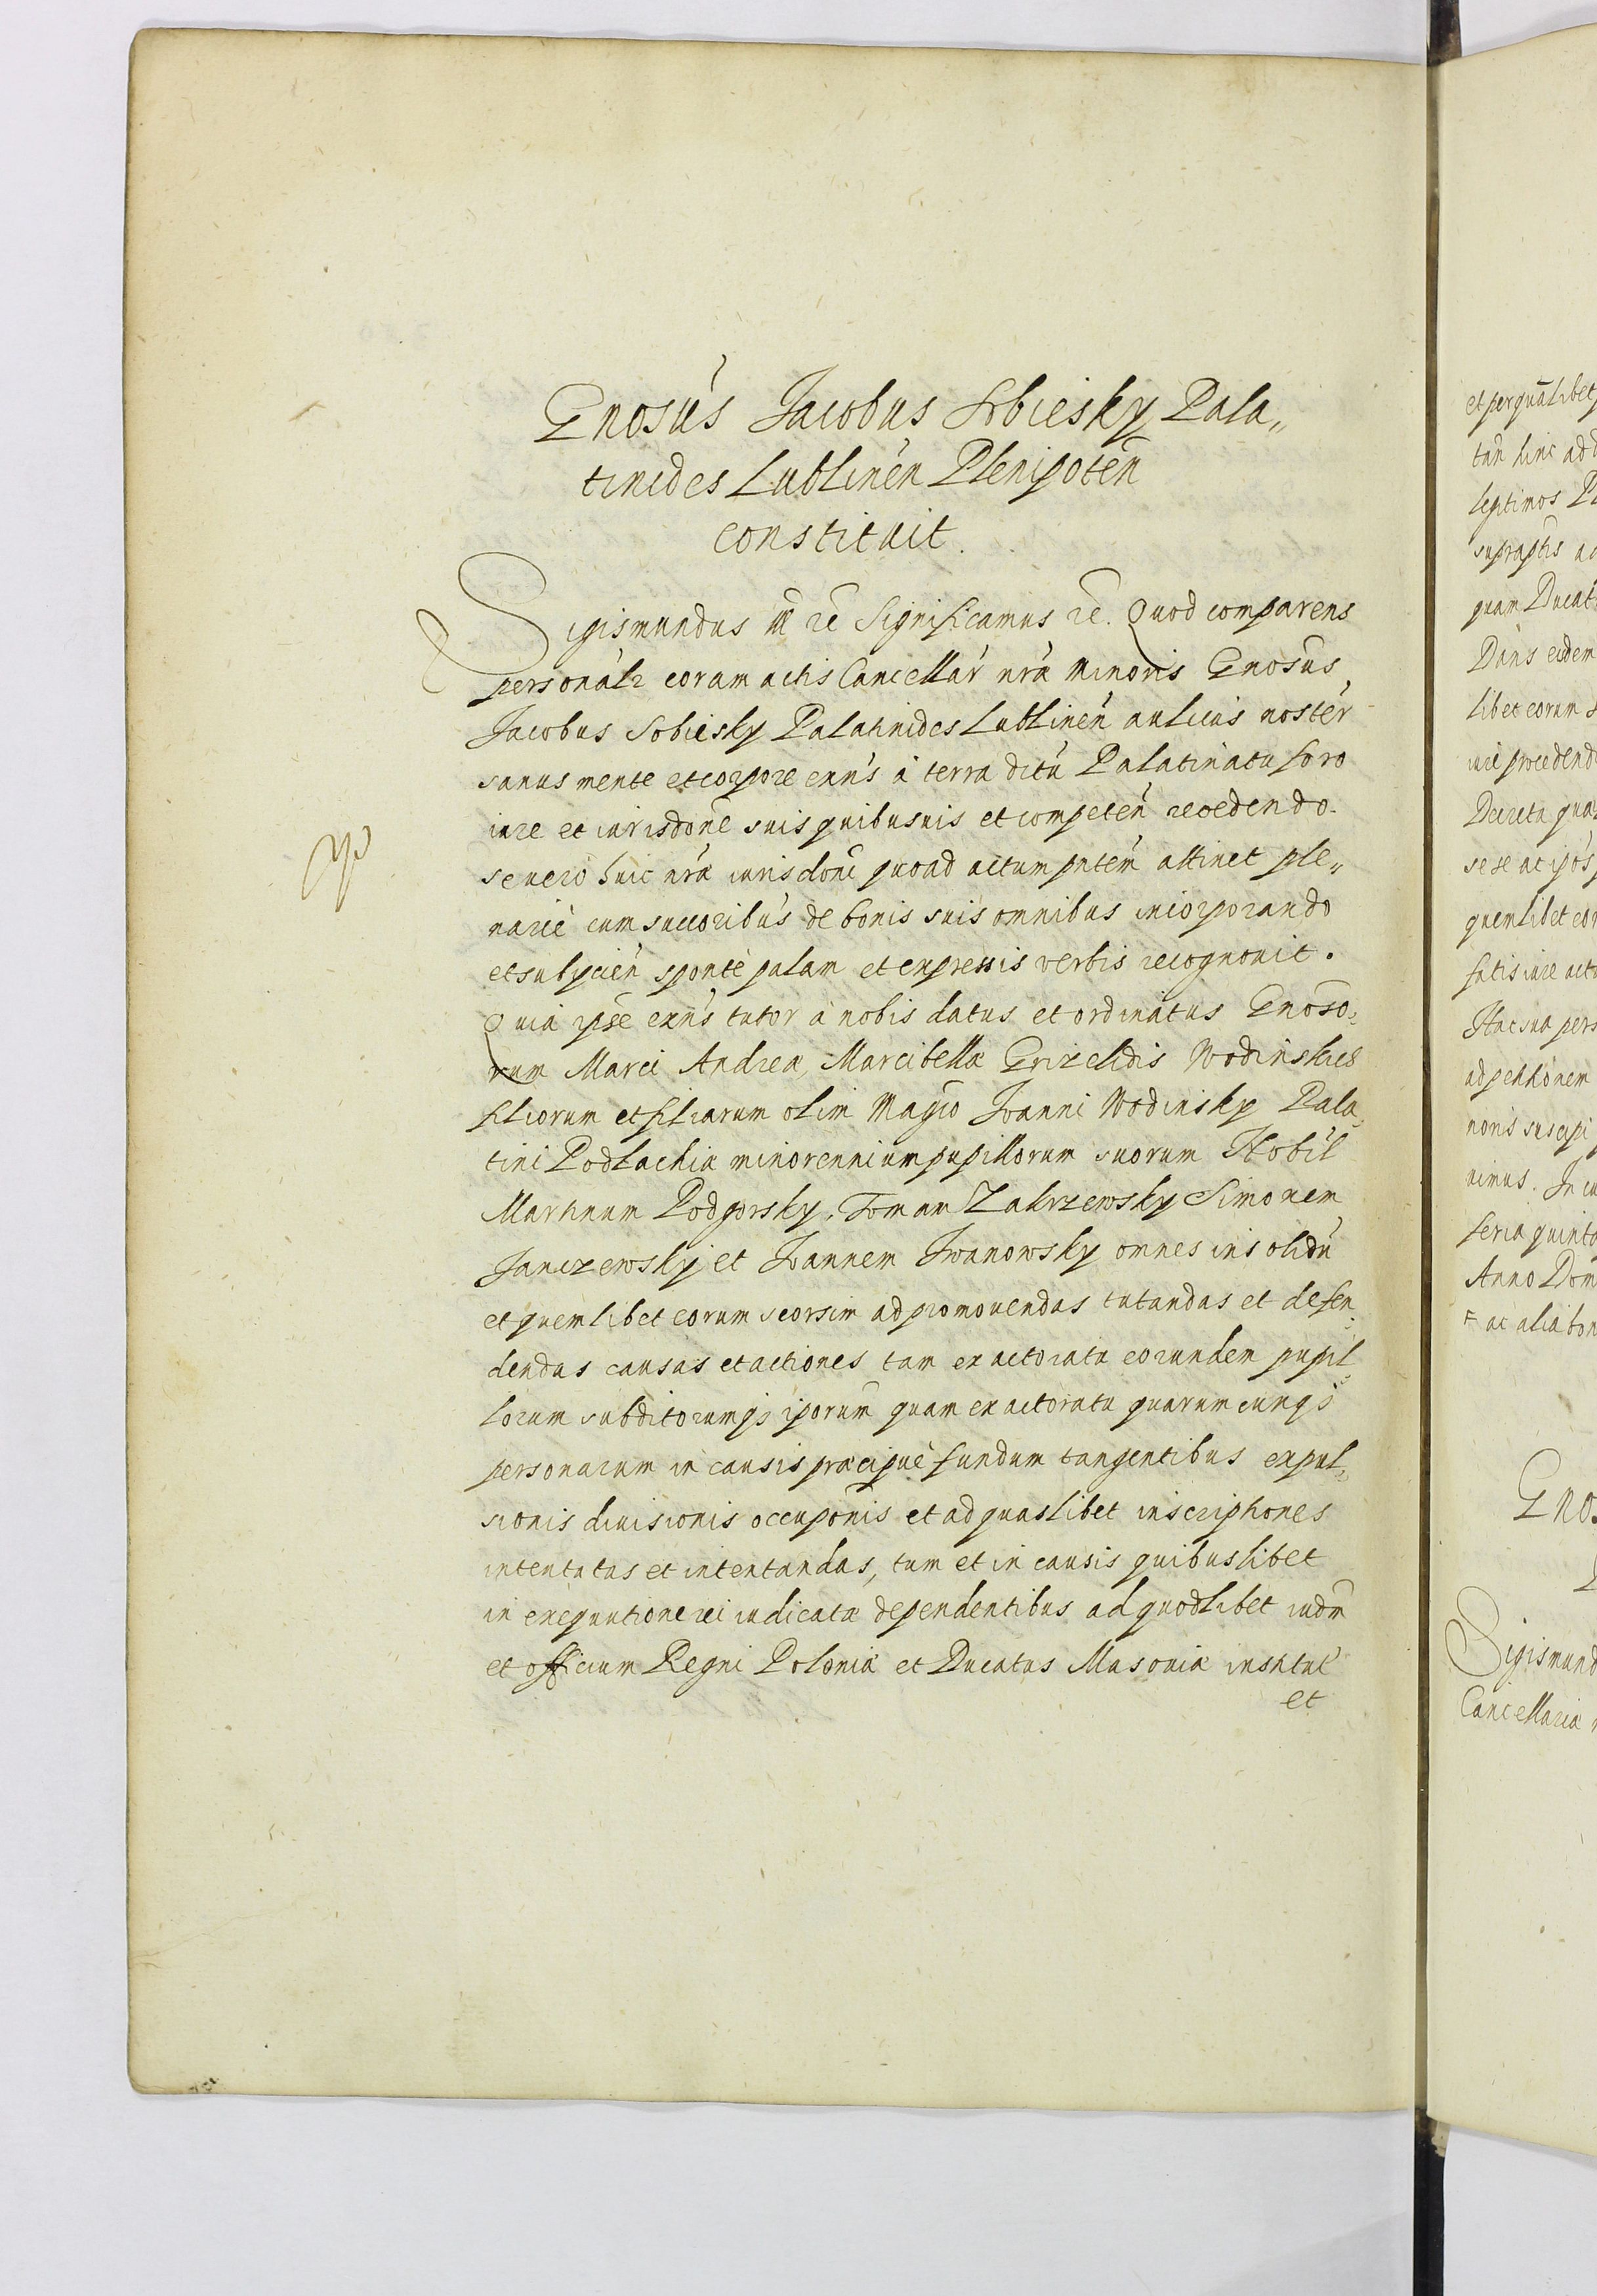 Gnosus Jacobus Sobiesky Pala„
tinides Lublinen Plenipoten
constituit.
Sigismundus III rc Significamus rc. Quod comparens
personalr coram actis Cancellar nra minoris Gnosus
Jacobus Sobiesky Palatinides Lublinen aulicus noster
sanus mente et corpore exns à terra dictu Palatinatu foro
iure et iurisdone suis quibusuis et competen recedendo
se vero huic nra iurisdoni quoad actum pntem attinet ple„
narie cum succoribus de bonis suis omnibus incorporando
et subycien sponte palam et expressis verbis recognouit.
Quia ipse exns tutor à nobis datus et ordinatus Gnoso„
rum Marci Andrea, Marcibella Grizeldis Wodinskies
filiorum et filiarum olim Magco Joanni Wodinsky Pala„
tini Podlachia minorennium pupillorum suorum Nobil
Martinum Podgorsky, Tomam Zakrzewsky Simonem
Janczewsky et Joannem Iwanowsky omnes insolidu
et quemlibet eorum seorsim ad promouendas tutandas et defen„
dendas causas et actiones tam ex actoratu eorunden pupil„
lorum subditorumqs iporum quam ex actoratu quarumcunqs
personarum in causis præcipuè fundum tangentibus expul„
sionis diuisionis occuponis et ad quaslibet inscriptiones
intentatas et intentandas, tum et in causis quibuslibet
in exequutione rei iudicatæ dependentibus ad quodlibet iudm
et officium Regni Poloniæ et Ducatus Masouiæ institut
et
et per quālibet
tan hinc ad
legtimos
supraptis
quam Ducat
Dans eidem
libet eorum
iure procedend
Decreta qua
sese ac ipos
quemlibet eor
fatis iure act
Hac sua pers
ad petitionem
noris suscipi
uimus. In cu
feria quinta
Anno Dom
ac alia bon
Gnos
Sigismund
Cancellaria